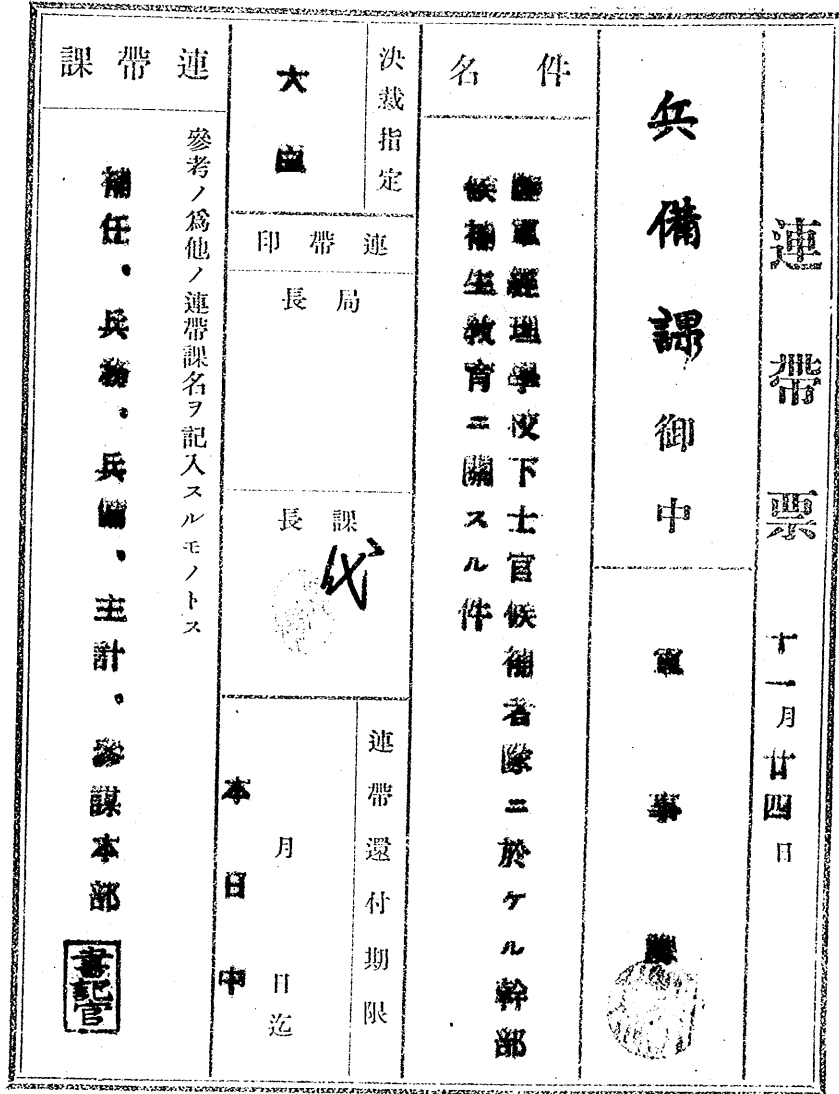 連帶票
十一月廿四日
兵備課御中
軍事課
件名
陸軍經理學校下士官候補者隊ニ於ケル幹部
候補生教育ニ關スル件
決裁指定
大臣
連帶印
局長
課長
代
連帶還付期限
月 日迄
本日中
連帶課
參考ノ爲他ノ連帶課名ヲ記入スルモノトス
補任、兵務、兵備、主計、參謀本部
書記官